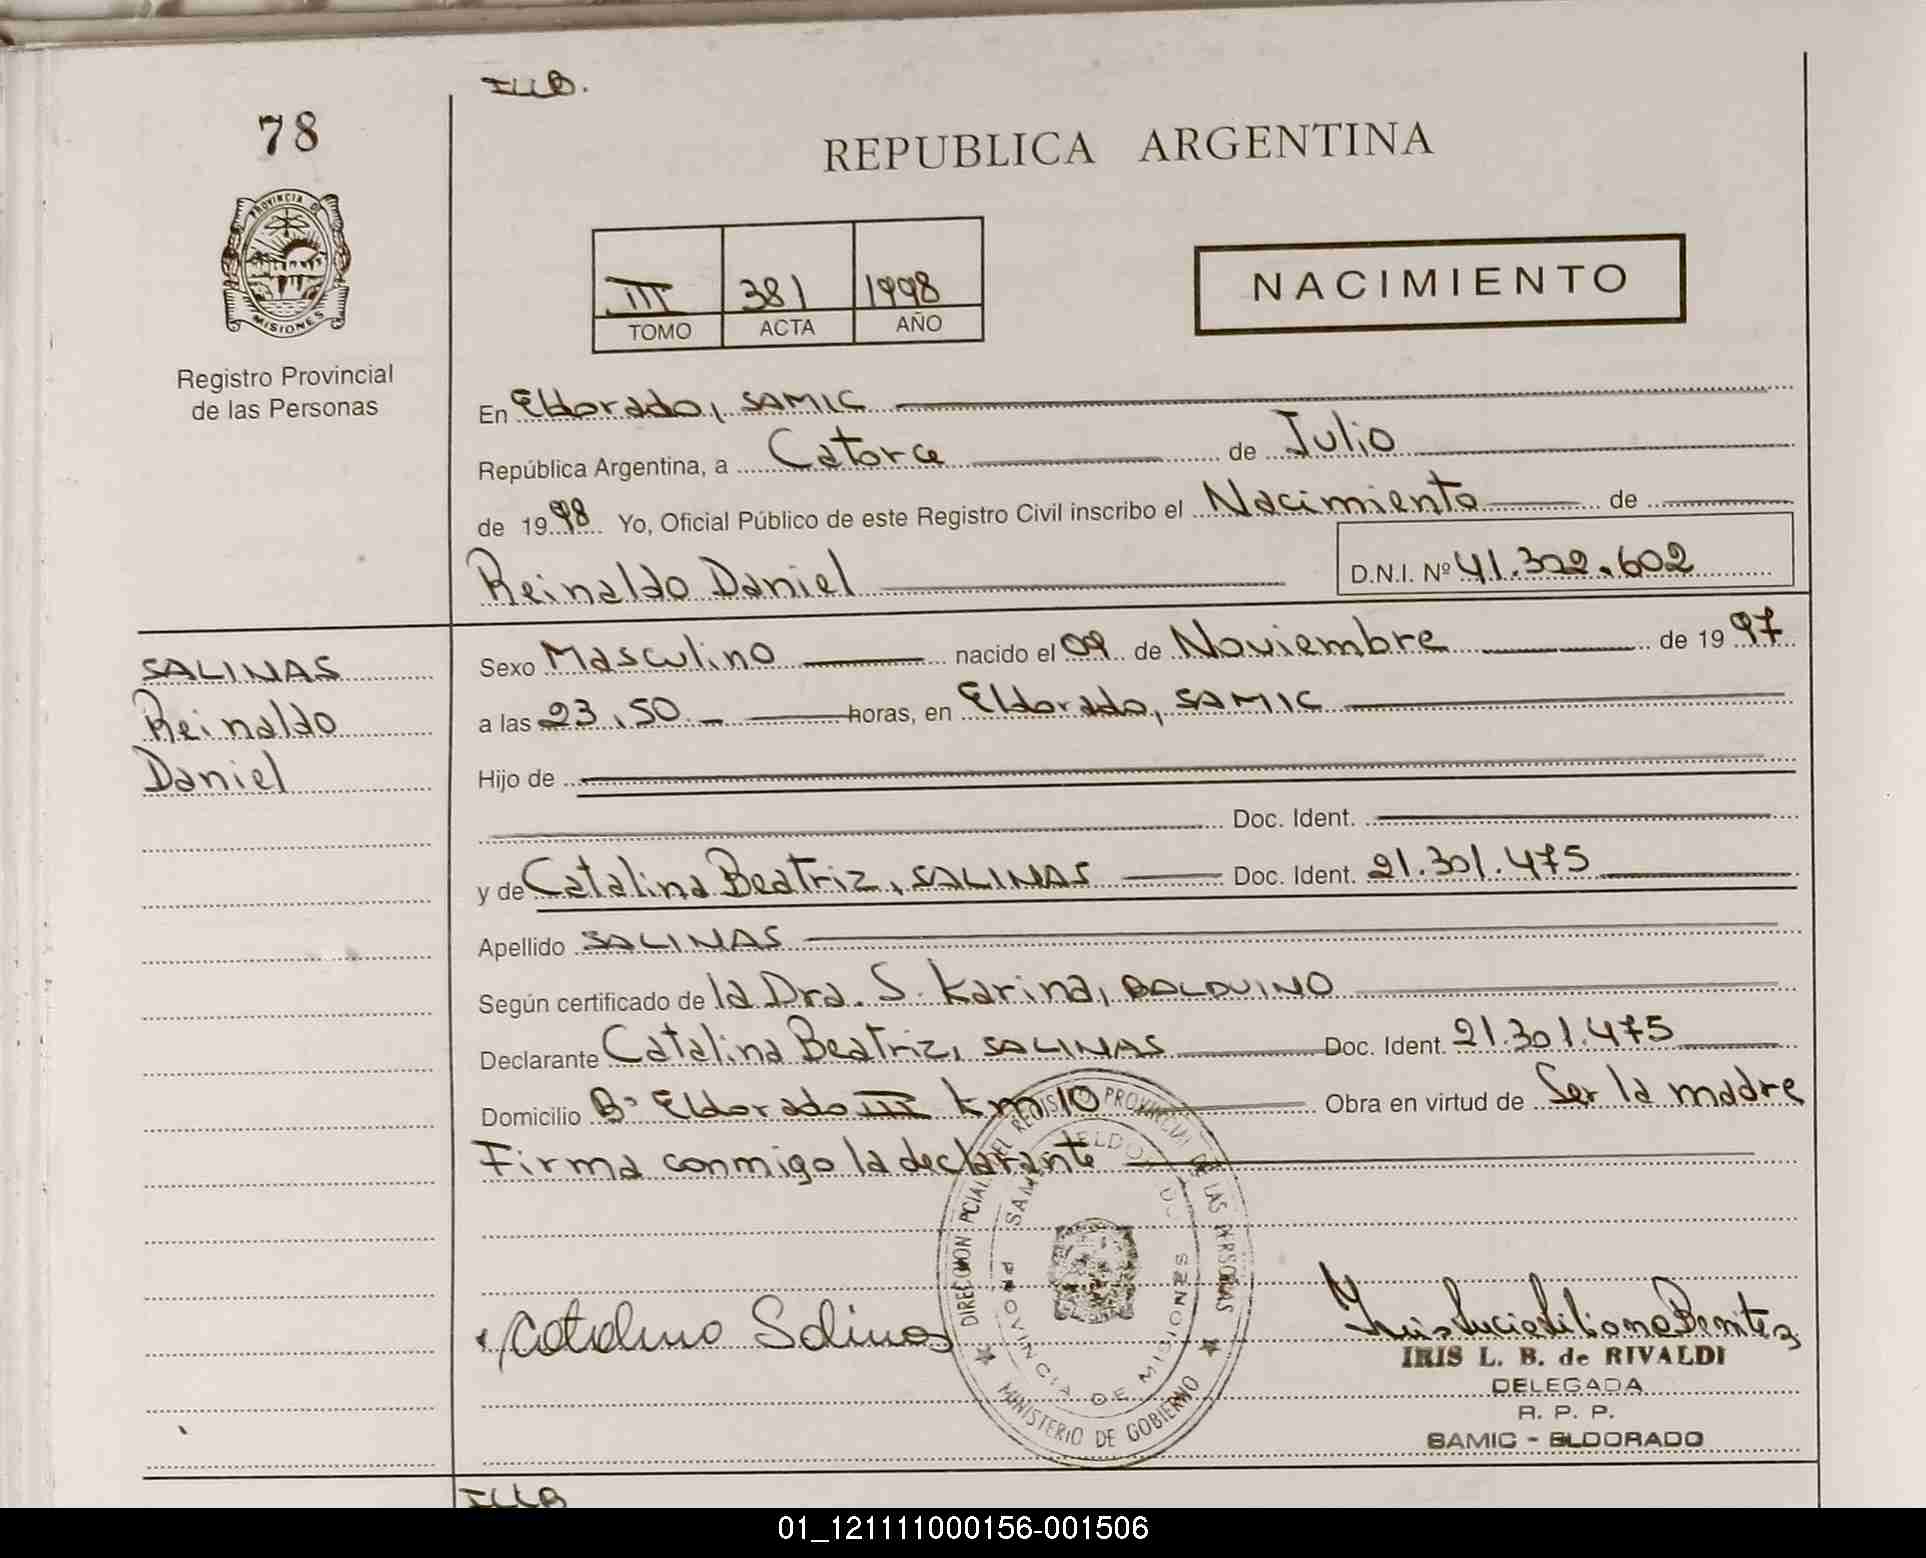 ILLB.
78
REPUBLICA ARGENTINA
PROVINCIA D
MISIONES
Registro Provincial
de las Personas
III 381 1998
TOMO ACTA AÑO
NACIMIENTO
En Eldorado, SAMIC
República Argentina, a Catorce de Julio
de 1998 Yo, Oficial Público de este Registro Civil inscribo el Nacimiento de
Reinaldo Daniel D.N.I. Nº 41.302.602
SALINAS
Reinaldo
Daniel
Sexo Masculino nacido el 09 de Noviembre de 1997
a las 23,50 horas, en Eldorado, SAMIC
Hijo de
Doc. Ident.
y de Catalina Beatriz, SALINAS Doc. Ident. 21.301.475
Apellido SALINAS
Según certificado de la Dra. S. Karina, BALDUINO
Declarante Catalina Beatriz, SALINAS Doc. Ident. 21.301.475
Domicilio Bº Eldorado III km 10 Obra en virtud de Ser la madre
Firma conmigo la declarante
DIRECCION PCIAL. DEL REGISTRO PROVINCIAL DE LAS PERSONAS
MINISTERIO DE GOBIERNO
PROVINCIA DE MISIONES
Catalina Salinas
Iris Lucia Liliana Benitez
IRIS L. B. de RIVALDI
DELEGADA
R. P. P.
SAMIC - ELDORADO
ILLB
01_121111000156-001506